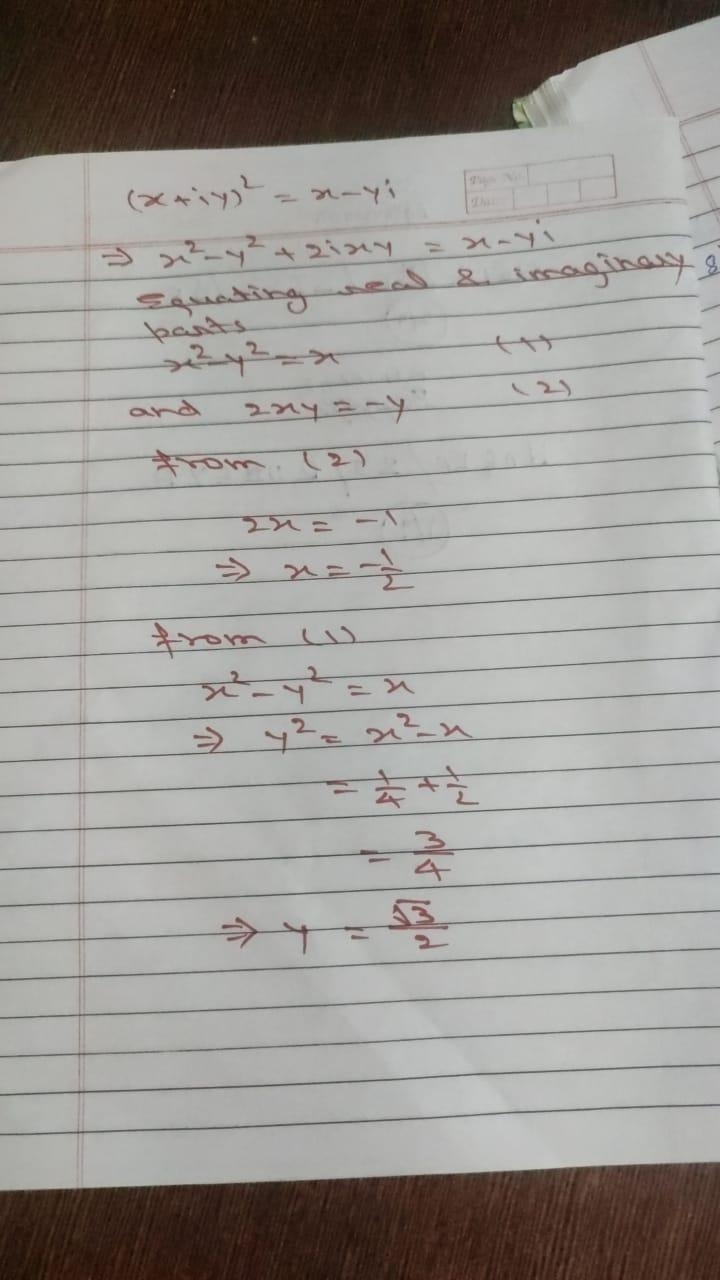 (x+iy)² = x-yi
⇒ x²-y²+2ixy = x-yi
Equating real & imaginary
parts
x²-y²=x (1)
and 2xy=-y (2)
from (2)
2x = -1
⇒ x=-1/2
from (1)
x²-y² = x
⇒ y² = x²-x
= 1/4 + 1/2
= 3/4
⇒ y = √3/2